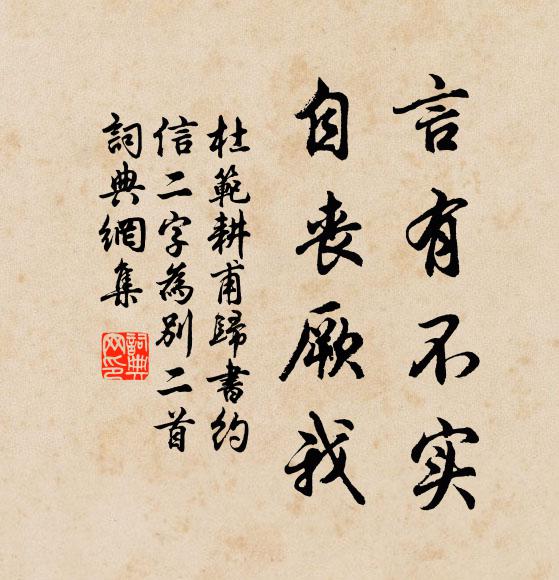 言有不实
自丧厥我
杜範耕甫歸書約
信二字為別二首
詞典網集
詞典
网印